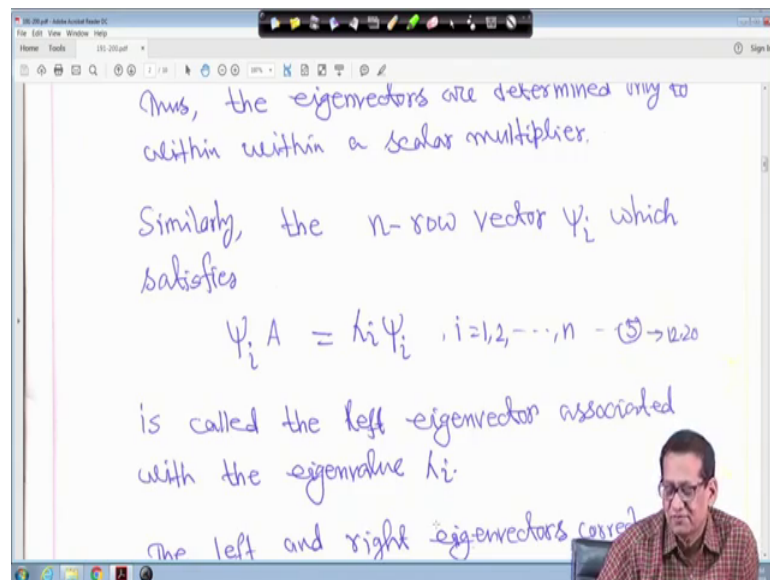 191-200.pdf - Adobe Acrobat Reader DC
File Edit View Window Help
Home Tools 191-200.pdf × Sign In
Thus, the eigenvectors are determined only to
within within a scalar multiplier.
Similarly, the n-row vector ψi which
satisfies
ψi A = λi ψi , i=1,2,----,n - (5) → 12.20
is called the left eigenvector associated
with the eigenvalue λi.
The left and right eigenvectors corre